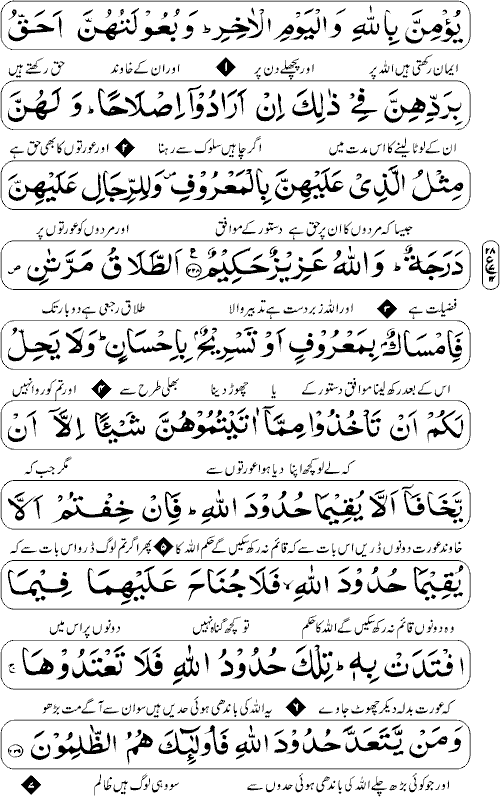 يُؤْمِنَّ بِاللّٰهِ وَالْيَوْمِ الْاٰخِرِ ؕ وَبُعُوْلَتُهُنَّ اَحَقُّ
ایمان رکھتی ہیں اللہ پر ۱ اور پچھلے دن پر اور ان کے خاوند حق رکھتے ہیں
بِرَدِّهِنَّ فِيْ ذٰلِكَ اِنْ اَرَادُوْۤا اِصْلَاحًا ؕ وَ لَهُنَّ
ان کے لوٹا لینے کا اس مدت میں اگر چاہیں سلوک سے رہنا ۲ اور عورتوں کا بھی حق ہے
مِثْلُ الَّذِيْ عَلَيْهِنَّ بِالْمَعْرُوْفِ ۪ وَلِلرِّجَالِ عَلَيْهِنَّ
جیسا کہ مردوں کا ان پر حق ہے دستور کے موافق اور مردوں کو عورتوں پر
دَرَجَةٌ ؕ وَاللّٰهُ عَزِيْزٌ حَكِيْمٌ ع ۲۲۸ اَلطَّلَاقُ مَرَّتٰنِ ص
فضیلت ہے ۳ اور اللہ زبردست ہے تدبیر والا طلاق رجعی ہے دو بار تک
فَاِمْسَاكٌۢ بِمَعْرُوْفٍ اَوْ تَسْرِيْحٌۢ بِاِحْسَانٍ ؕ وَلَا يَحِلُّ
اس کے بعد رکھ لینا موافق دستور کے یا چھوڑ دینا بھلی طرح سے ۴ اور تم کو روا نہیں
لَكُمْ اَنْ تَاْخُذُوْا مِمَّاۤ اٰتَيْتُمُوْهُنَّ شَيْـًٔا اِلَّاۤ اَنْ
کہ لے لو کچھ اپنا دیا ہوا عورتوں سے مگر جب کہ
يَّخَافَاۤ اَلَّا يُقِيْمَا حُدُوْدَ اللّٰهِ ؕ فَاِنْ خِفْتُمْ اَلَّا
خاوند عورت دونوں ڈریں اس بات سے کہ قائم نہ رکھ سکیں گے حکم اللہ کا ۵ پھر اگر تم لوگ ڈرو اس بات سے کہ
يُقِيْمَا حُدُوْدَ اللّٰهِ ۙ فَلَا جُنَاحَ عَلَيْهِمَا فِيْمَا
وہ دونوں قائم نہ رکھ سکیں گے اللہ کا حکم تو کچھ گناہ نہیں دونوں پر اس میں
افْتَدَتْ بِهٖ ؕ تِلْكَ حُدُوْدُ اللّٰهِ فَلَا تَعْتَدُوْهَا ۚ
کہ عورت بدلہ دیکر چھوٹ جاوے ۶ یہ اللہ کی باندھی ہوئی حدیں ہیں سو ان سے آگے مت بڑھو
وَمَنْ يَّتَعَدَّ حُدُوْدَ اللّٰهِ فَاُولٰٓئِكَ هُمُ الظّٰلِمُوْنَ ۲۲۹
اور جو کوئی بڑھ چلے اللہ کی باندھی ہوئی حدوں سے سو وہی لوگ ہیں ظالم ۷